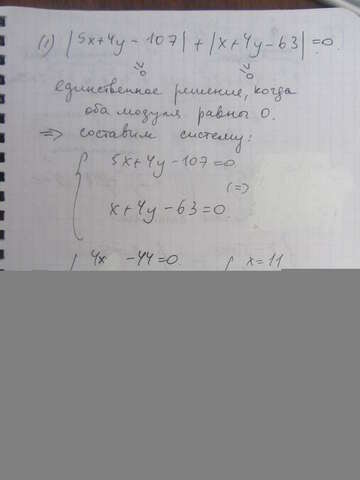 (1) |5x+4y-107|+|x+4y-63|=0.
≥0 ≥0
единственное решение, когда
оба модуля равны 0.
=> составим систему:
{ 5x+4y-107=0
(=)
x+4y-63=0
{ 4x -44=0 { x=11